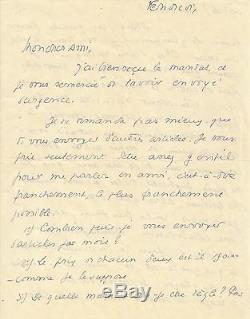 Vendredi,
Mon cher Ami,
J'ai bien reçu le mandat, et
je vous remercie de l'avoir envoyé
d'urgence.
Je ne demande pas mieux, que
de vous envoyer d'autres articles. Je vous
prie seulement d'être assez gentil
pour me parler en ami, c'est-à-dire
franchement, le plus franchement
possible.
1) Combien puis-je vous envoyer
d'articles par mois?
2) Le prix de chacun d'eux est-il
comme je le suppose
3) De quelle manière je réglé? Par